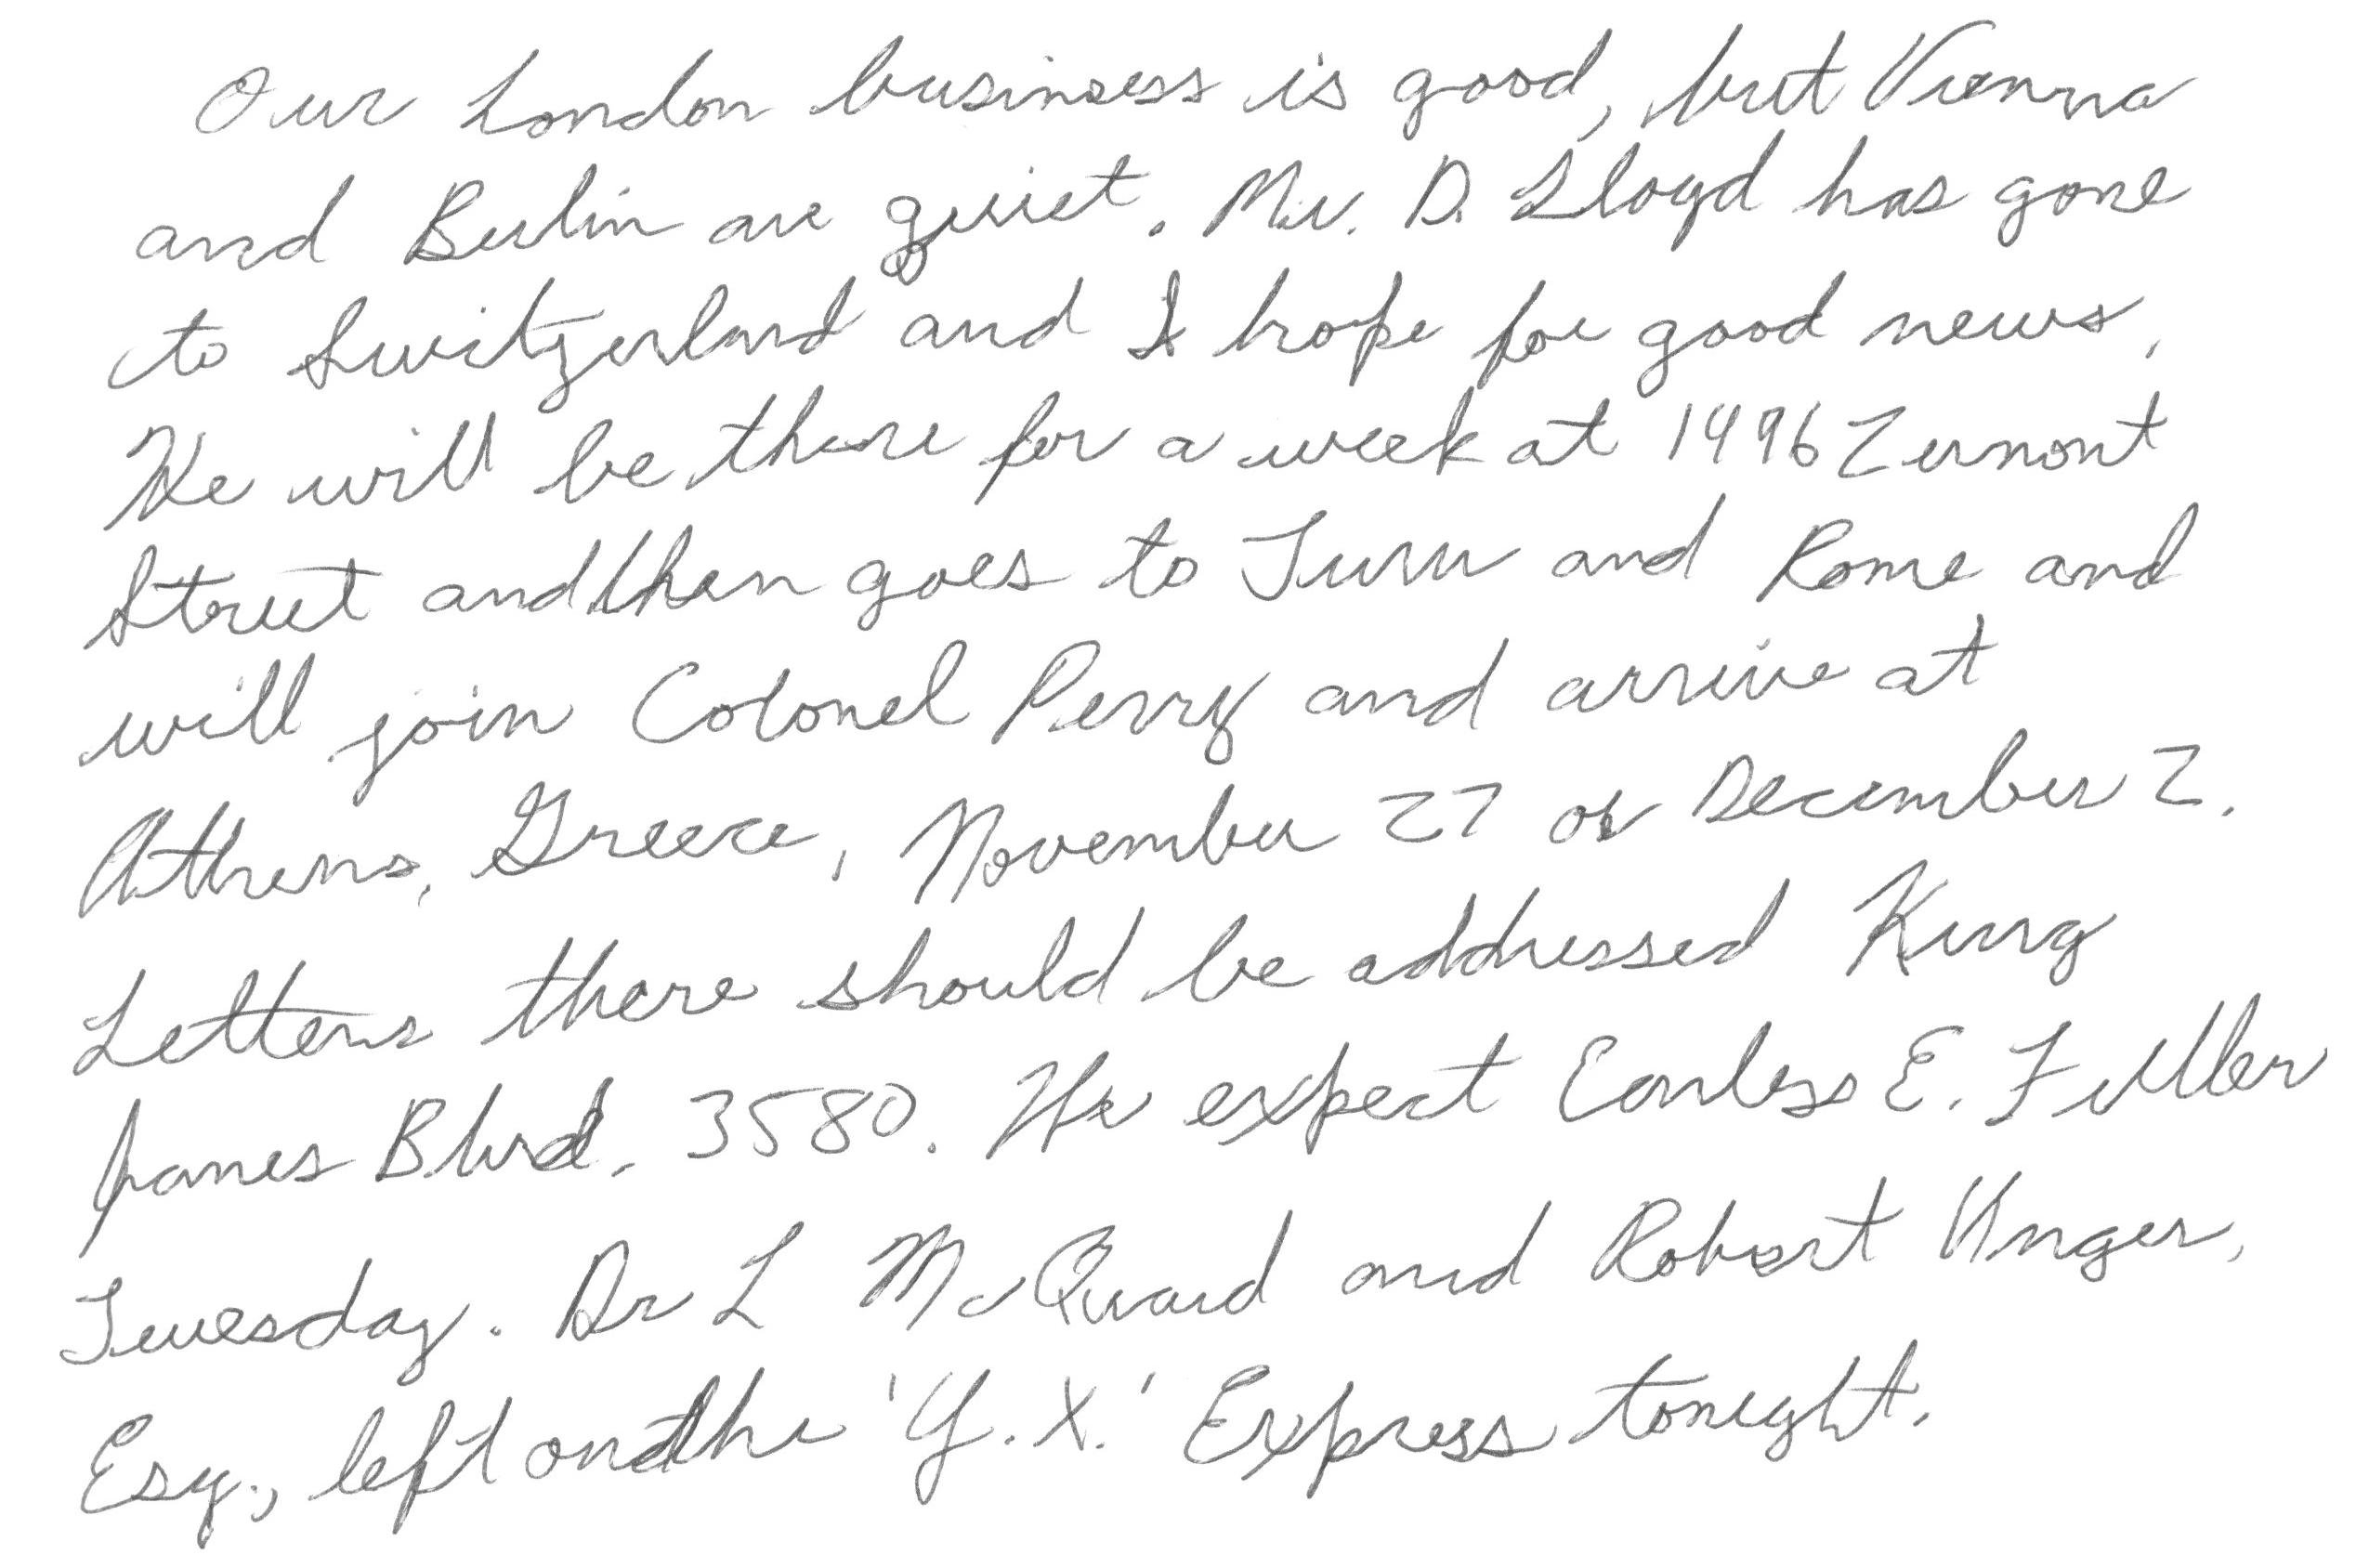 Our London business is good, but Vienna
and Berlin are quiet. Mr. D. Lloyd has gone
to Switzerland and I hope for good news.
He will be there for a week at 1496 Zermont
Street and then goes to Turin and Rome and
will join Colonel Perry and arrive at
Athens, Greece, November 27 or December 2.
Letters there should be addressed King
James Blvd. 3580. We expect Earless E. Fuller
Tuesday. Dr L McQuaid and Robert Unger,
Esq., left on the 'Y. X.' Express tonight.